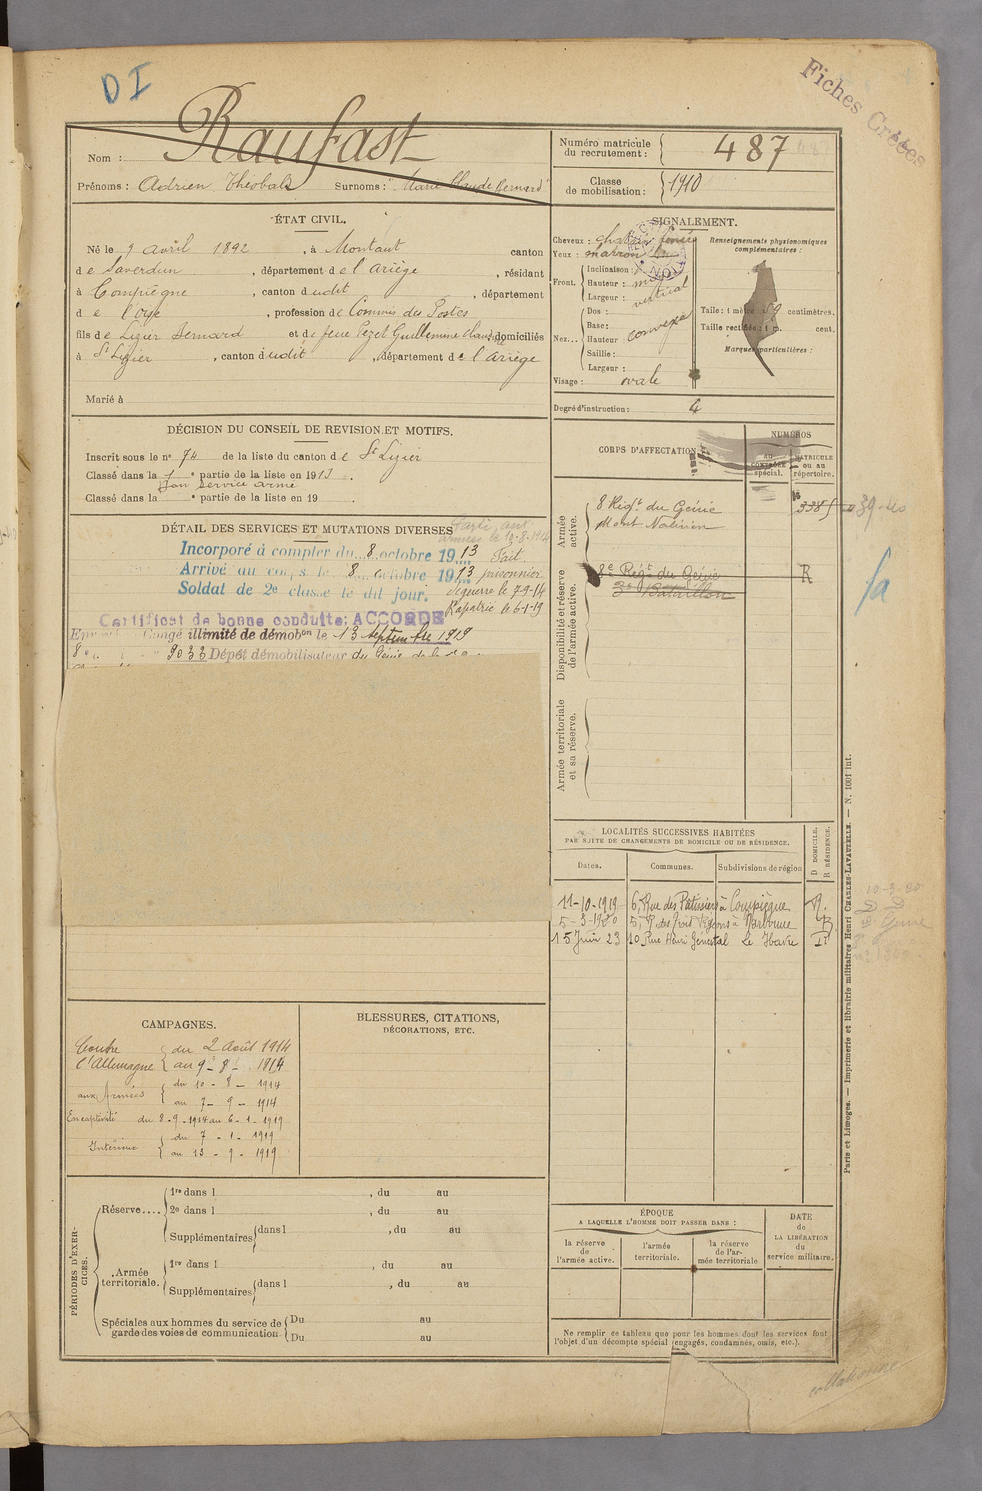 D I
Fiches Créées
Nom : Raufast
Prénoms : Adrien Théobald Surnoms : "Marie Claude Bernard"
Numéro matricule du recrutement : 487
Classe de mobilisation : 1910
ÉTAT CIVIL.
Né le 9 avril 1892, à Montaut canton
de Saverdun, département de l'Ariège, résidant
à Compiègne, canton dudit, département
de l'Oise, profession de Commis des Postes
fils de Lizier Bernard et de feue Pezet Guillemine Claudine, domiciliés
à St Lizier, canton dudit, département de l'Ariège
Marié à
SIGNALEMENT.
Cheveux : châtain
Yeux : marron
Front. Inclinaison :
Hauteur : moy
Largeur : vertical
Nez... Dos :
Base : convexe
Hauteur
Saillie :
Largeur :
Visage : ovale
Renseignements physionomiques complémentaires :
Taille : 1 mètre 59 centimètres.
Taille rectifiée : 1 m. cent.
Marques particulières :
Degré d'instruction : 4
DÉCISION DU CONSEIL DE REVISION ET MOTIFS.
Inscrit sous le no 74 de la liste du canton de St Lizier
Classé dans la 1e partie de la liste en 1913.
Bon service armé
Classé dans la e partie de la liste en 19 .
DÉTAIL DES SERVICES ET MUTATIONS DIVERSES
Parti aux armées le 10-8-1914
Incorporé à compter du 8 octobre 1913 Fait
Arrivé au corps le 8 octobre 1913 prisonnier
Soldat de 2e classe le dit jour. de guerre le 7-9-14
Rapatrié le 6-1-19
Certificat de bonne conduite: ACCORDÉ
Congé illimité de démobon le 13 septembre 1919
9033 Dépôt démobilisateur du Génie
CORPS D'AFFECTATION
NUMÉROS
au CONTRÔLE spécial.
MATRICULE ou au répertoire.
Armée active.
8 Régt du Génie
Mont Valérien
Disponibilité et réserve de l'armée active.
8e Régt du Génie R
3e Bataillon
Armée territoriale et sa réserve.
fa
LOCALITÉS SUCCESSIVES HABITÉES
PAR SUITE DE CHANGEMENTS DE DOMICILE OU DE RÉSIDENCE.
Dates. Communes. Subdivisions de région D DOMICILE. R RÉSIDENCE.
11-10-1919 6, Rue des Pâtissiers à Compiègne R.
5-3-1920 5, R des Trois Pigeons à Narbonne R
15 Juin 23 10 Rue Henri Génestal Le Havre D
CAMPAGNES.
Contre l'Allemagne du 2 Août 1914
au 9-8-1914
aux Armées du 10-8-1914
au 7-9-1914
En captivité du 8-9-1914 au 6-1-1919
Intérieur du 7-1-1919
au 13-9-1919
BLESSURES, CITATIONS,
DÉCORATIONS, ETC.
PÉRIODES D'EXERCICES.
Réserve.... 1re dans l , du au
2e dans l , du au
Supplémentaires dans l , du au
Armée territoriale. 1re dans l , du au
Supplémentaires dans l , du au
Spéciales aux hommes du service de garde des voies de communication. Du au
Du au
ÉPOQUE
A LAQUELLE L'HOMME DOIT PASSER DANS :
la réserve de l'armée active.
l'armée territoriale.
la réserve de l'armée territoriale
DATE de LA LIBÉRATION du service militaire.
Ne remplir ce tableau que pour les hommes dont les services font
l'objet d'un décompte spécial (engagés, condamnés, omis, etc.).
Paris et Limoges. — Imprimerie et librairie militaires Henri CHARLES-LAVAUZELLE. — N. 1001 int.
collationné